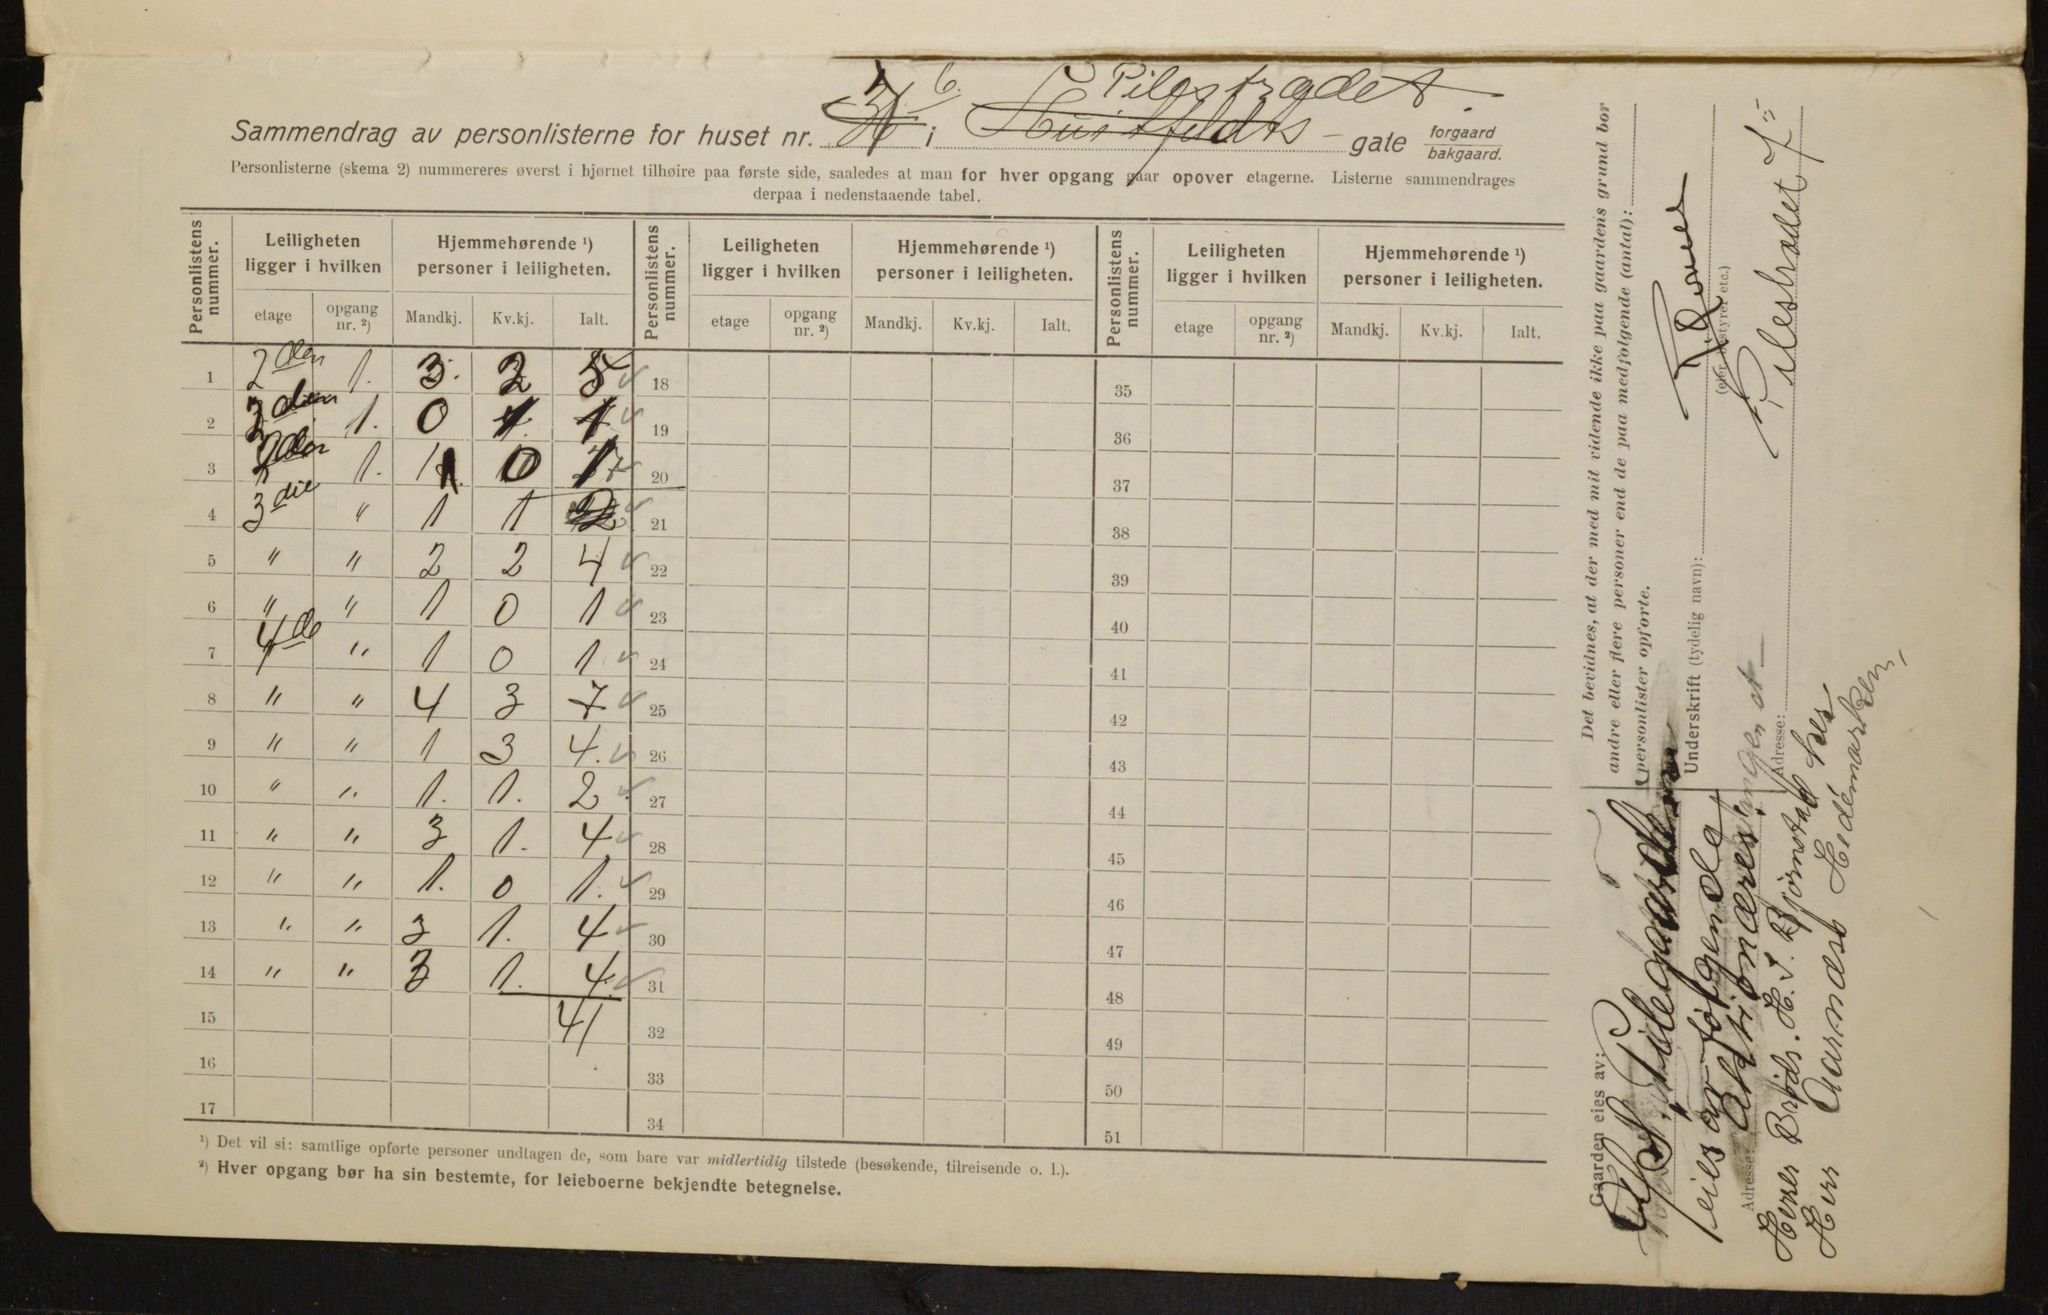 6. Pilestrædet
Sammendrag av personlisterne for huset nr. i Huitfeldts - gate forgaard bakgaard.
Personlisterne (skema 2) nummereres øverst i hjørnet tilhøire paa første side, saaledes at man for hver opgang gaar opover etagerne. Listerne sammendrages
derpaa i nedenstaaende tabel.
Personlistens nummer. Leiligheten ligger i hvilken Hjemmehørende ¹) personer i leiligheten. Personlistens nummer. Leiligheten ligger i hvilken Hjemmehørende ¹) personer i leiligheten. Personlistens nummer. Leiligheten ligger i hvilken Hjemmehørende ¹) personer i leiligheten.
etage opgang nr. ²) Mandkj. Kv.kj. Ialt. etage opgang nr. ²) Mandkj. Kv.kj. Ialt. etage opgang nr. ²) Mandkj. Kv.kj. Ialt.
1 2 den 1. 3. 2 5 18 35
2 1. 0 1. 1 19 36
3 1. 1 0 1 20 37
4 3 die " 1 1 2 21 38
5 " " 2 2 4 22 39
6 " " 1 0 1 23 40
7 4 de " 1 0 1 24 41
8 " " 4 3 7 25 42
9 " " 1 3 4. 26 43
10 " " 1. 1. 2. 27 44
11 " " 3 1. 4 28 45
12 " " 1. 0 1. 29 46
13 " " 3 1. 4 30 47
14 " " 3 1. 4. 31 48
15 41 32 49
16 33 50
17 34 51
¹) Det vil si: samtlige opførte personer undtagen de, som bare var midlertidig tilstede (besøkende, tilreisende o. l.).
²) Hver opgang bør ha sin bestemte, for leieboerne bekjendte betegnelse.
Det bevidnes, at der med mit vidende ikke paa gaardens grund bor
andre eller flere personer end de paa medfølgende (antal):
personlister opførte.
Underskrift (tydelig navn):
(eier, bestyrer etc.)
Adresse: Pilestrædet 7
Gaarden eies av:
eies av følgende
Aktionærer:
Adresse:
Herrer Brødr. H. I. Bjørnstad
Herr Hedemarken